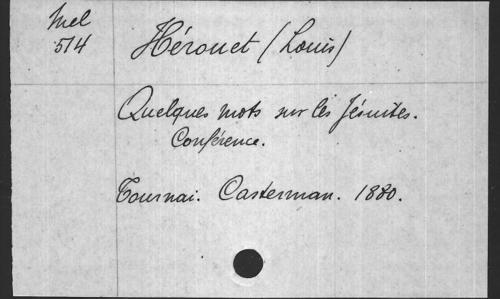 Mel
514
Hérouet (Louis)
Quelques mots sur les Jésuites.
Conférence.
Tournai. Casterman. 1880.